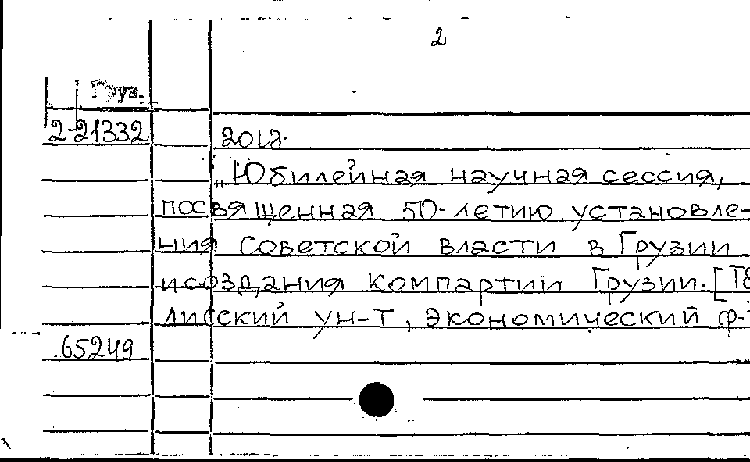 2
Груз.
2-21332
"Юбилейная научная сессия,
посвященная 50-летию установле-
ния Советской власти в Грузии
и создания компартии Грузии. [Тб
лисский ун-т, экономический ф-т
65249